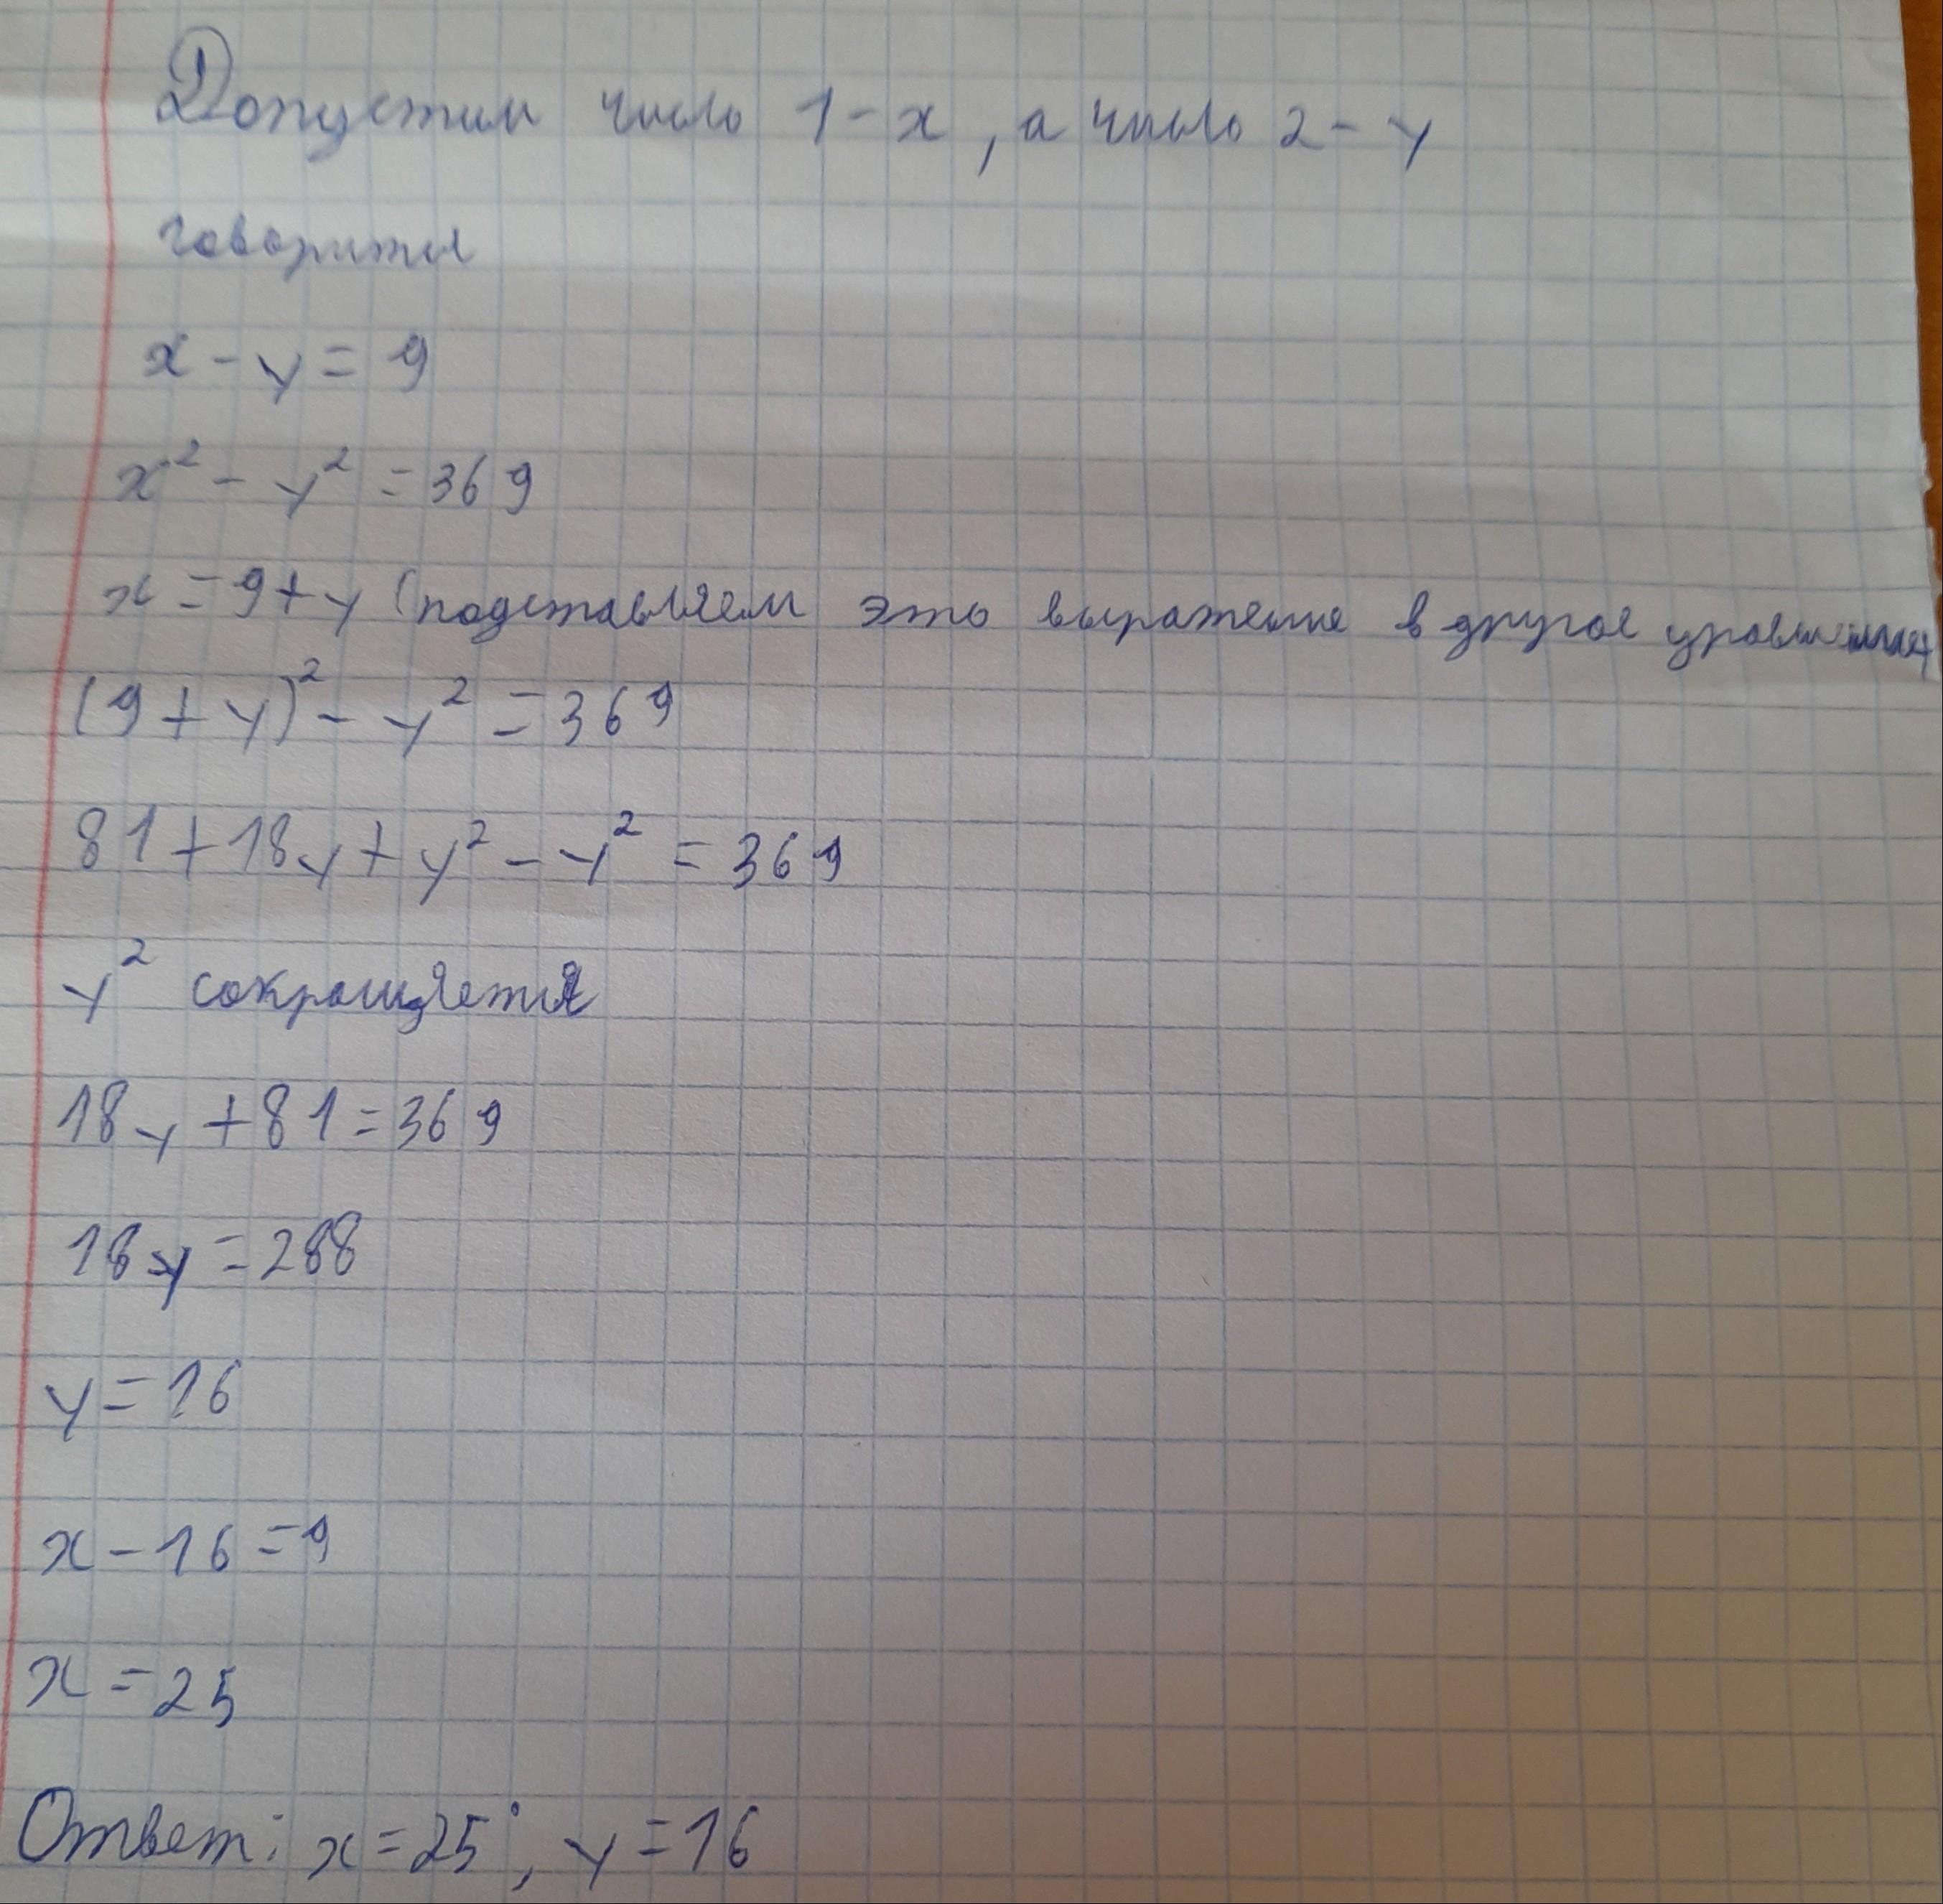 Допустим число 1 - x, а число 2 - y
говорится
x - y = 9
x² - y² = 369
x = 9 + y (подставляем это выражение в другое уравнение)
(9 + y)² - y² = 369
81 + 18y + y² - y² = 369
y² сокращяется
18y + 81 = 369
18y = 288
y = 16
x - 16 = 9
x = 25
Ответ: x = 25; y = 16